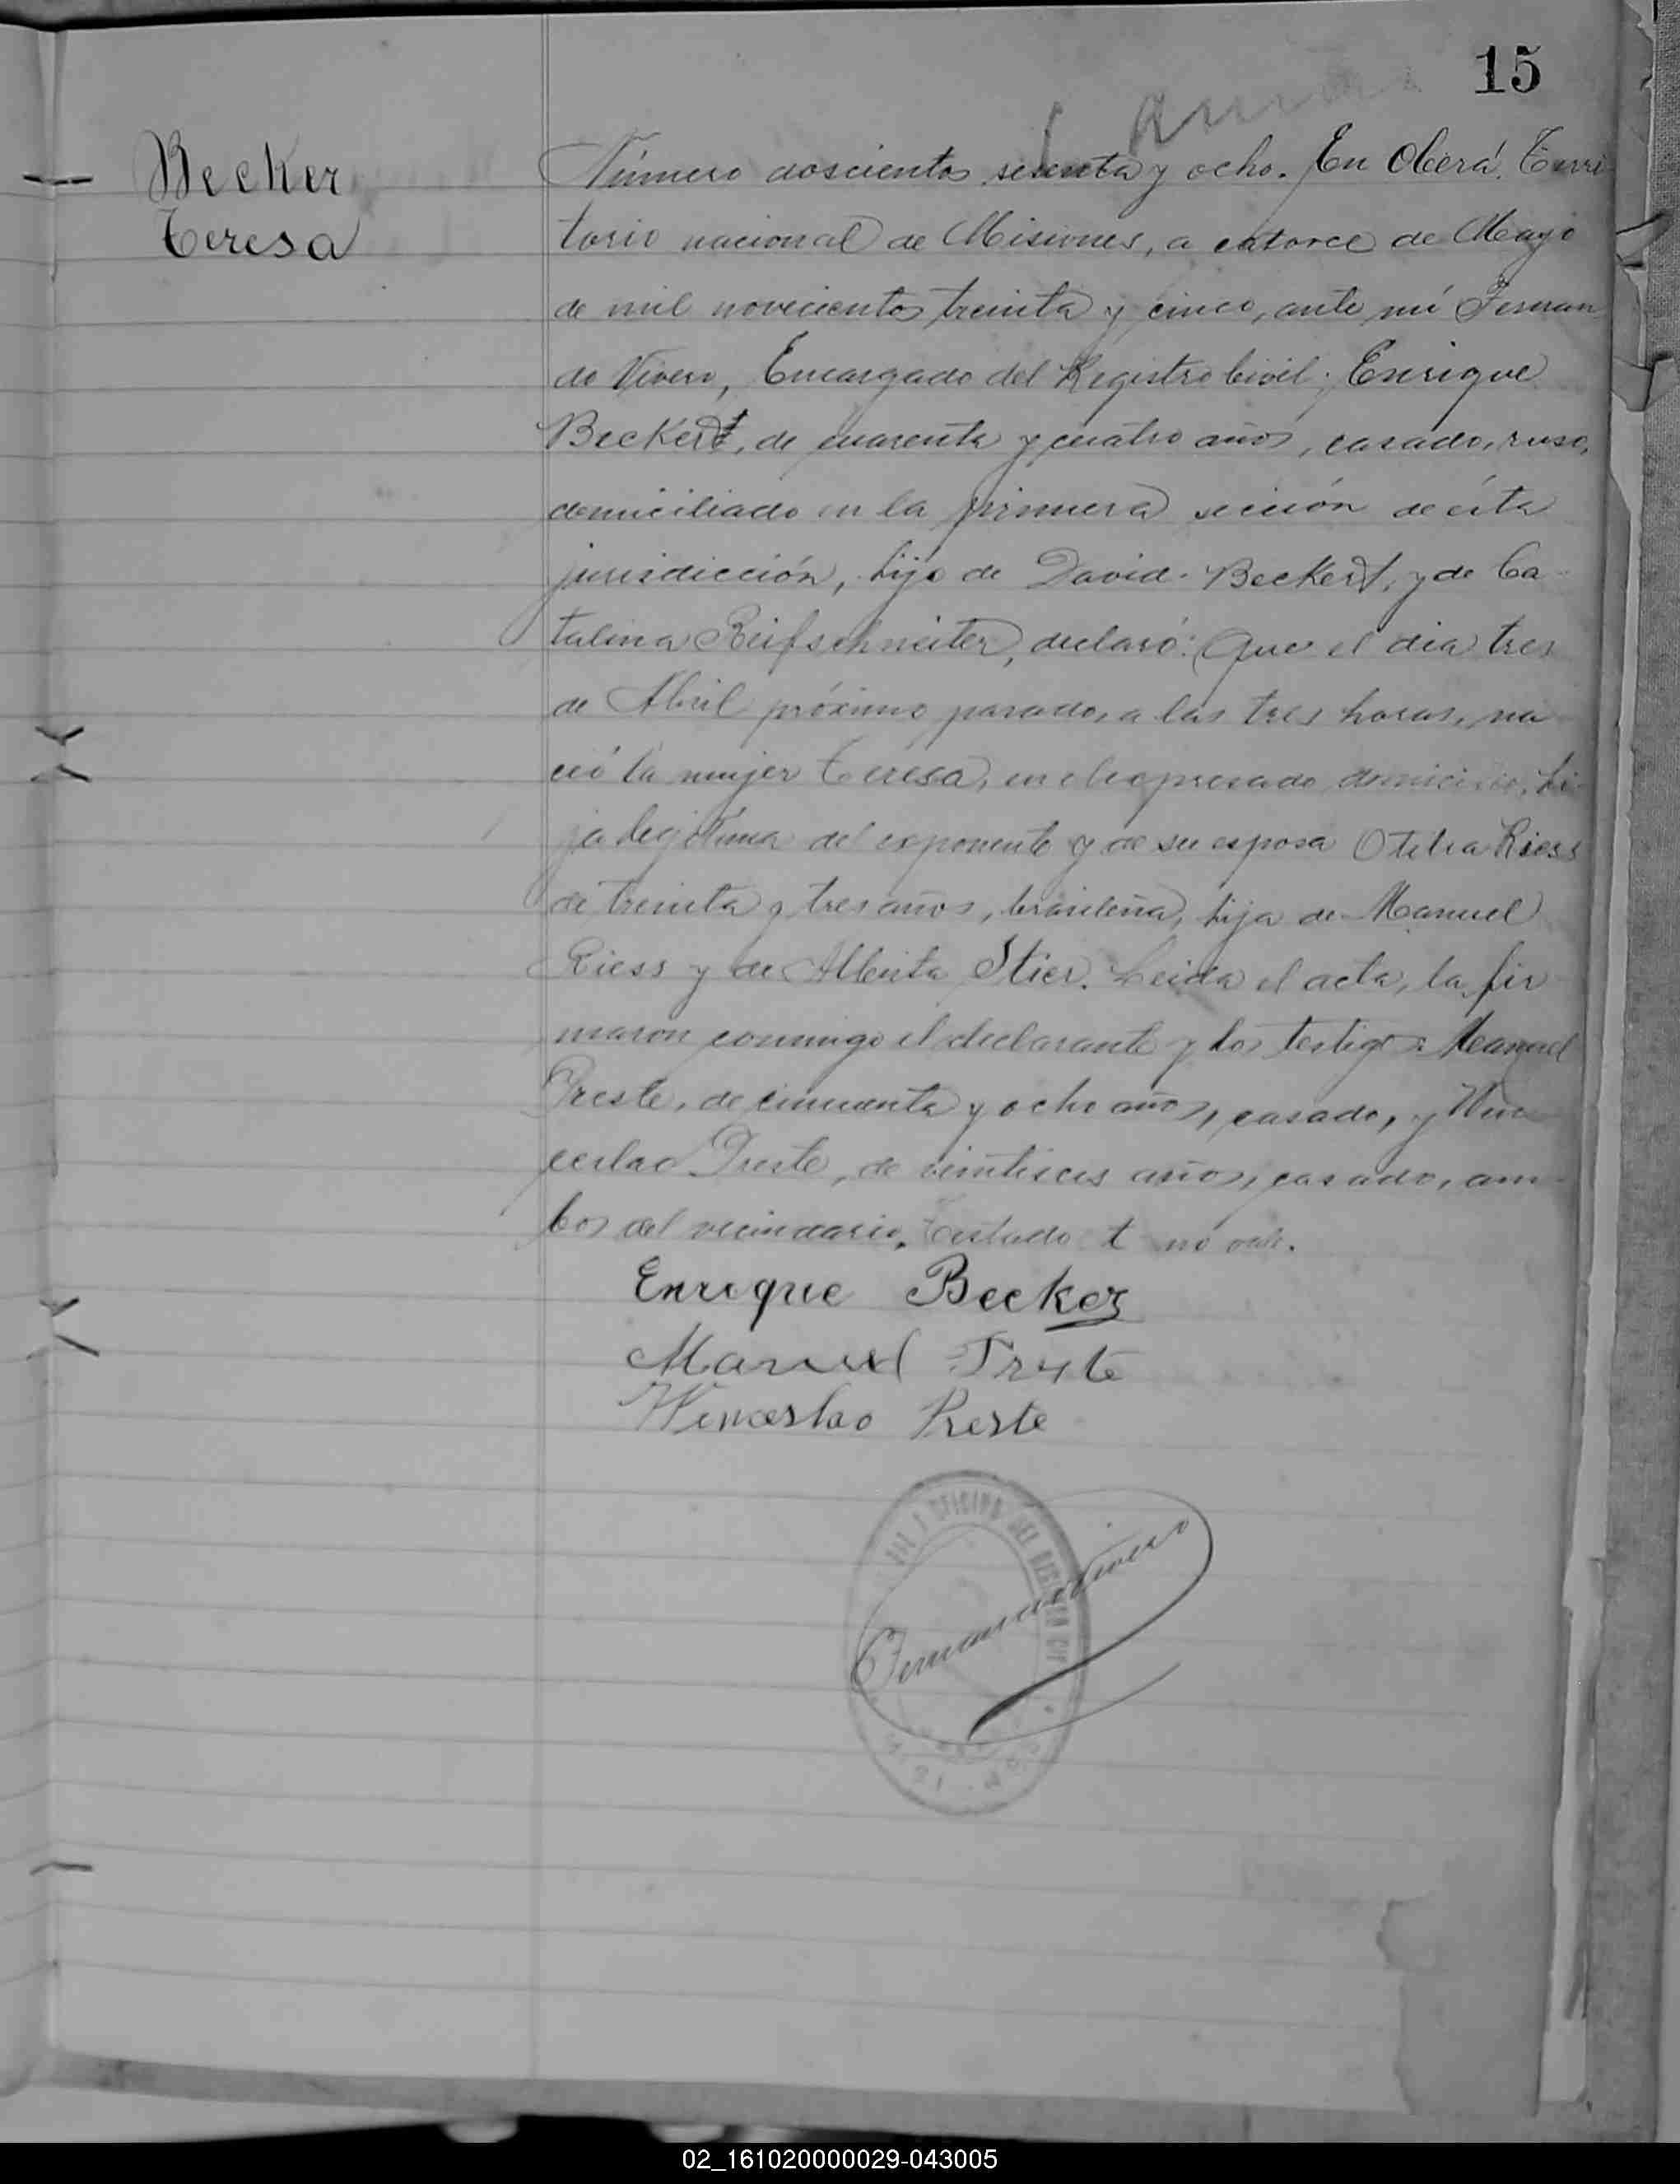 15
Becker
Teresa
Número doscientos y ocho. En Oberá, Terri
torio nacional de Misiones, a catorce de Mayo
de mil novecientos treinta y cinco, ante mí Fernan
do Vivero, Encargado del Registro Civil: Enrique
Beckert, de cuarenta y cuatro años, casado, ruso,
domiciliado en la primera sección de ésta
jurisdicción, hijo de David Beckert, y de Ca-
talina Reifschneiter, declaró: Que el dia tres
de Abril próximo pasado, a las tres horas, na
ció la mujer Teresa, en el expresado domicilio, hi-
ja legítima del exponente y de su esposa Otilia Riess
de treinta y tres años, brasileña, hija de Manuel
Riess y de Alberta Stier. Leida el acta, la fir-
maron conmigo el declarante y los testigos: Manuel
Preste, de cincuenta y ocho años, casado, y Wen
ceslao Preste, de veintiseis años, casado, am-
bos del vecindario. Testado t no vale.
Enrique Becker
Manuel
Wenceslao Preste
OFICINA DEL REGISTRO CIVIL
Fernando Vivero
02_161020000029-043005